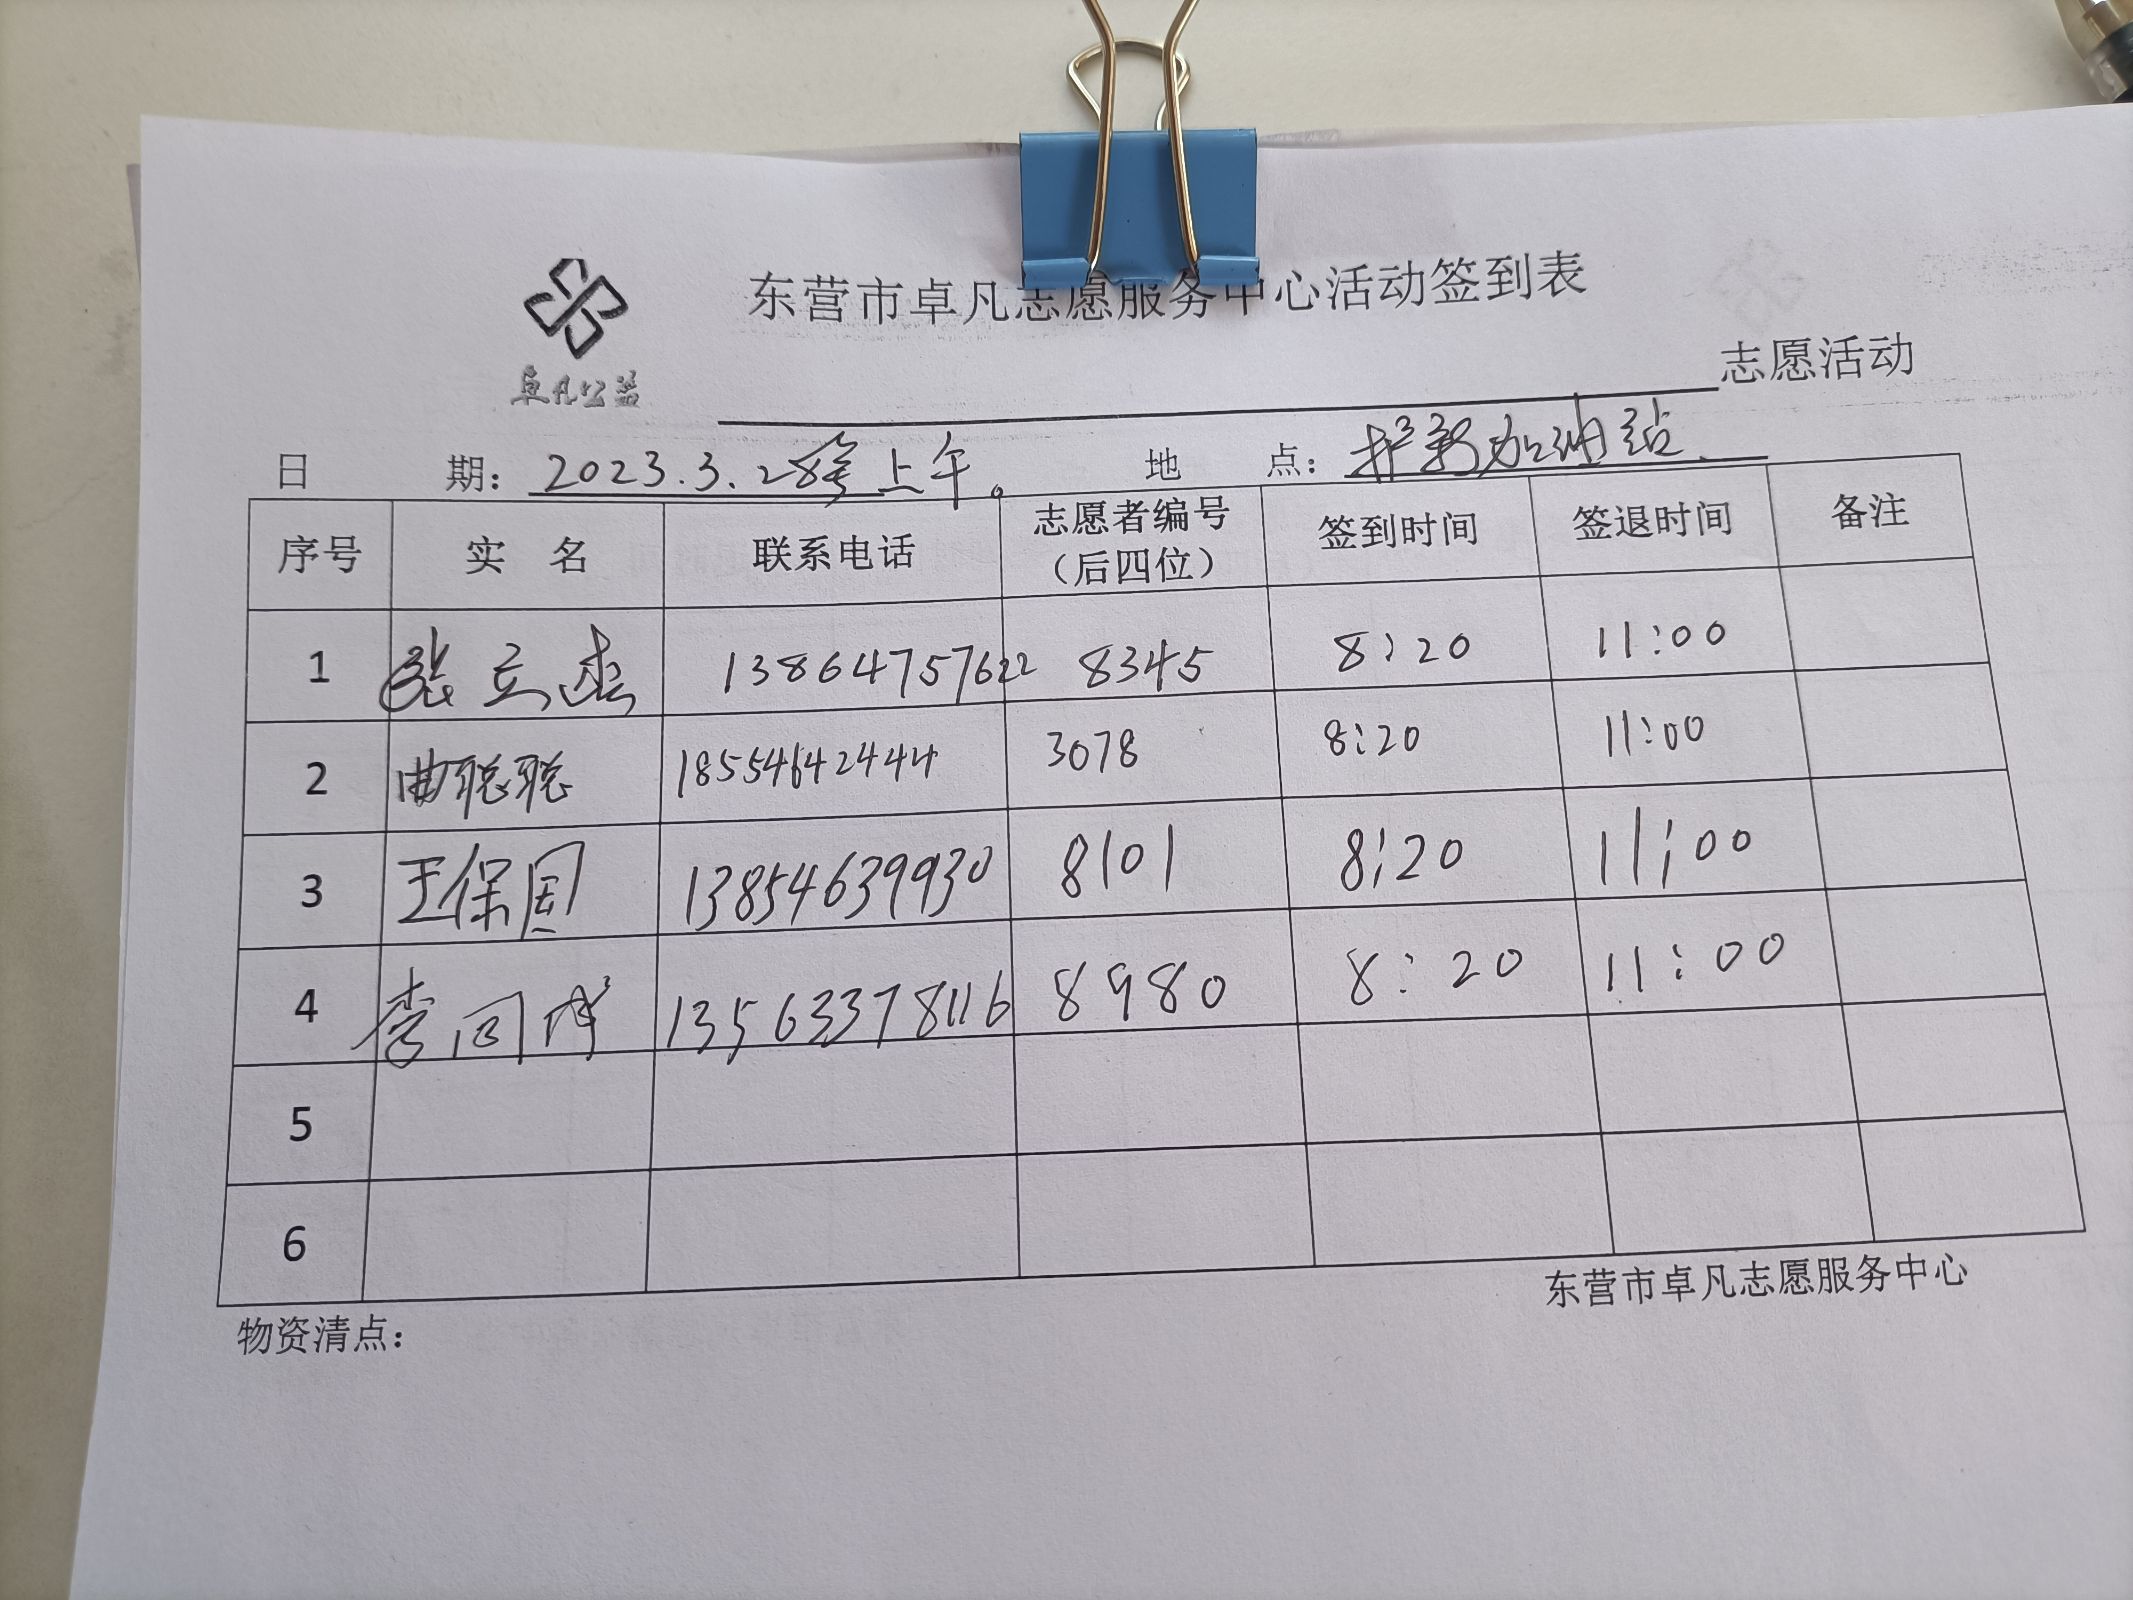 东营市卓凡志愿服务中心活动签到表
卓凡公益
志愿活动
日 期：2023.3.28 上午。 地 点：加油站
序号 实 名 联系电话 志愿者编号（后四位） 签到时间 签退时间 备注
1 张立 13864757622 8345 8:20 11:00
2 曲聪聪 18554642444 3078 8:20 11:00
3 王保国 13854639930 8101 8:20 11:00
4 李同 13563378116 8980 8:20 11:00
5
6
东营市卓凡志愿服务中心
物资清点：